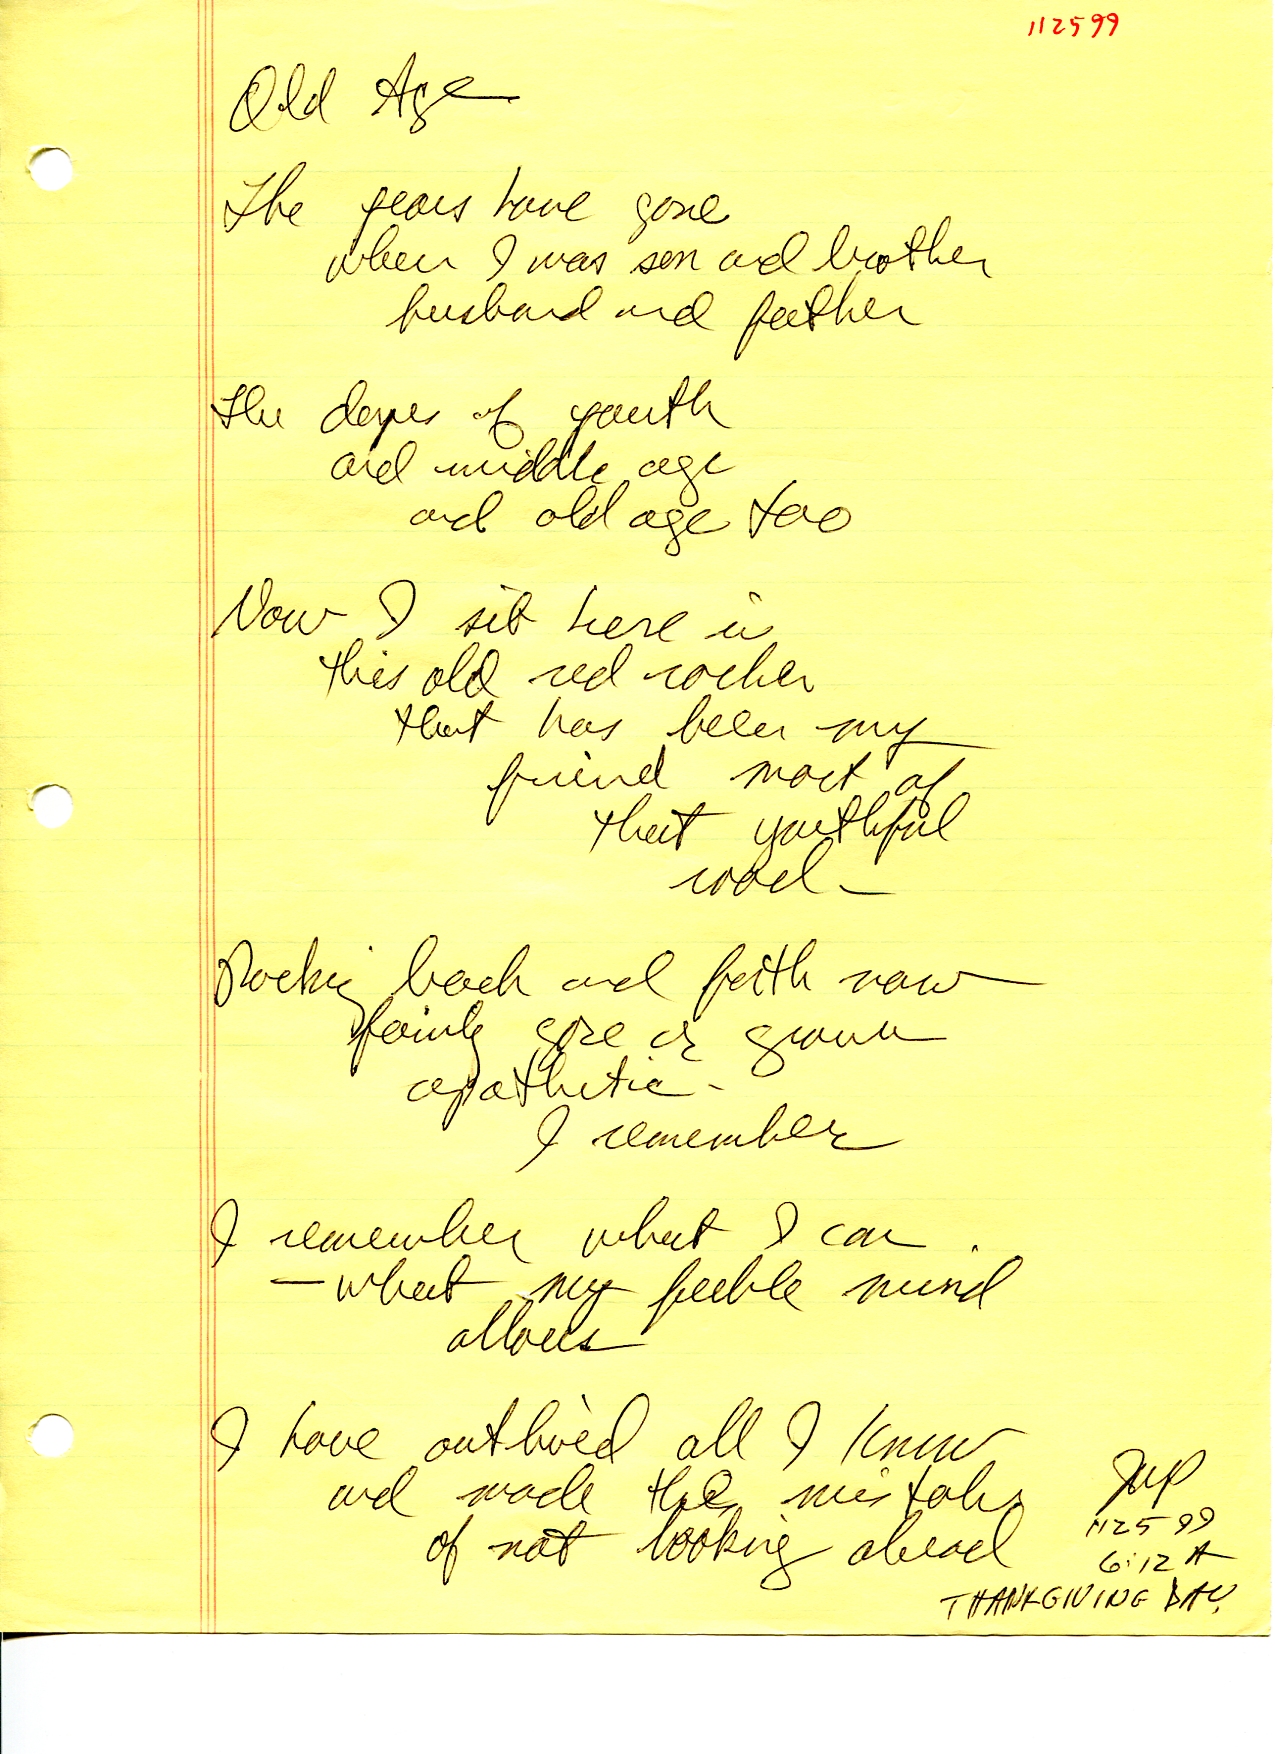 112599
Old Age
The years have gone
when I was son and brother
husband and father
The days of youth
and middle age
and old age too
Now I sit here in
this old red rocker
that has been my
friend most of
that youthful
road —
Rocking back and forth now
family gone or grown
apathetic -
I remember
I remember what I can
— what my feeble mind
allows
I have outlived all I knew
and made the mistake
of not looking ahead
JWP
112599
6:12 A
THANKGIVING DAY